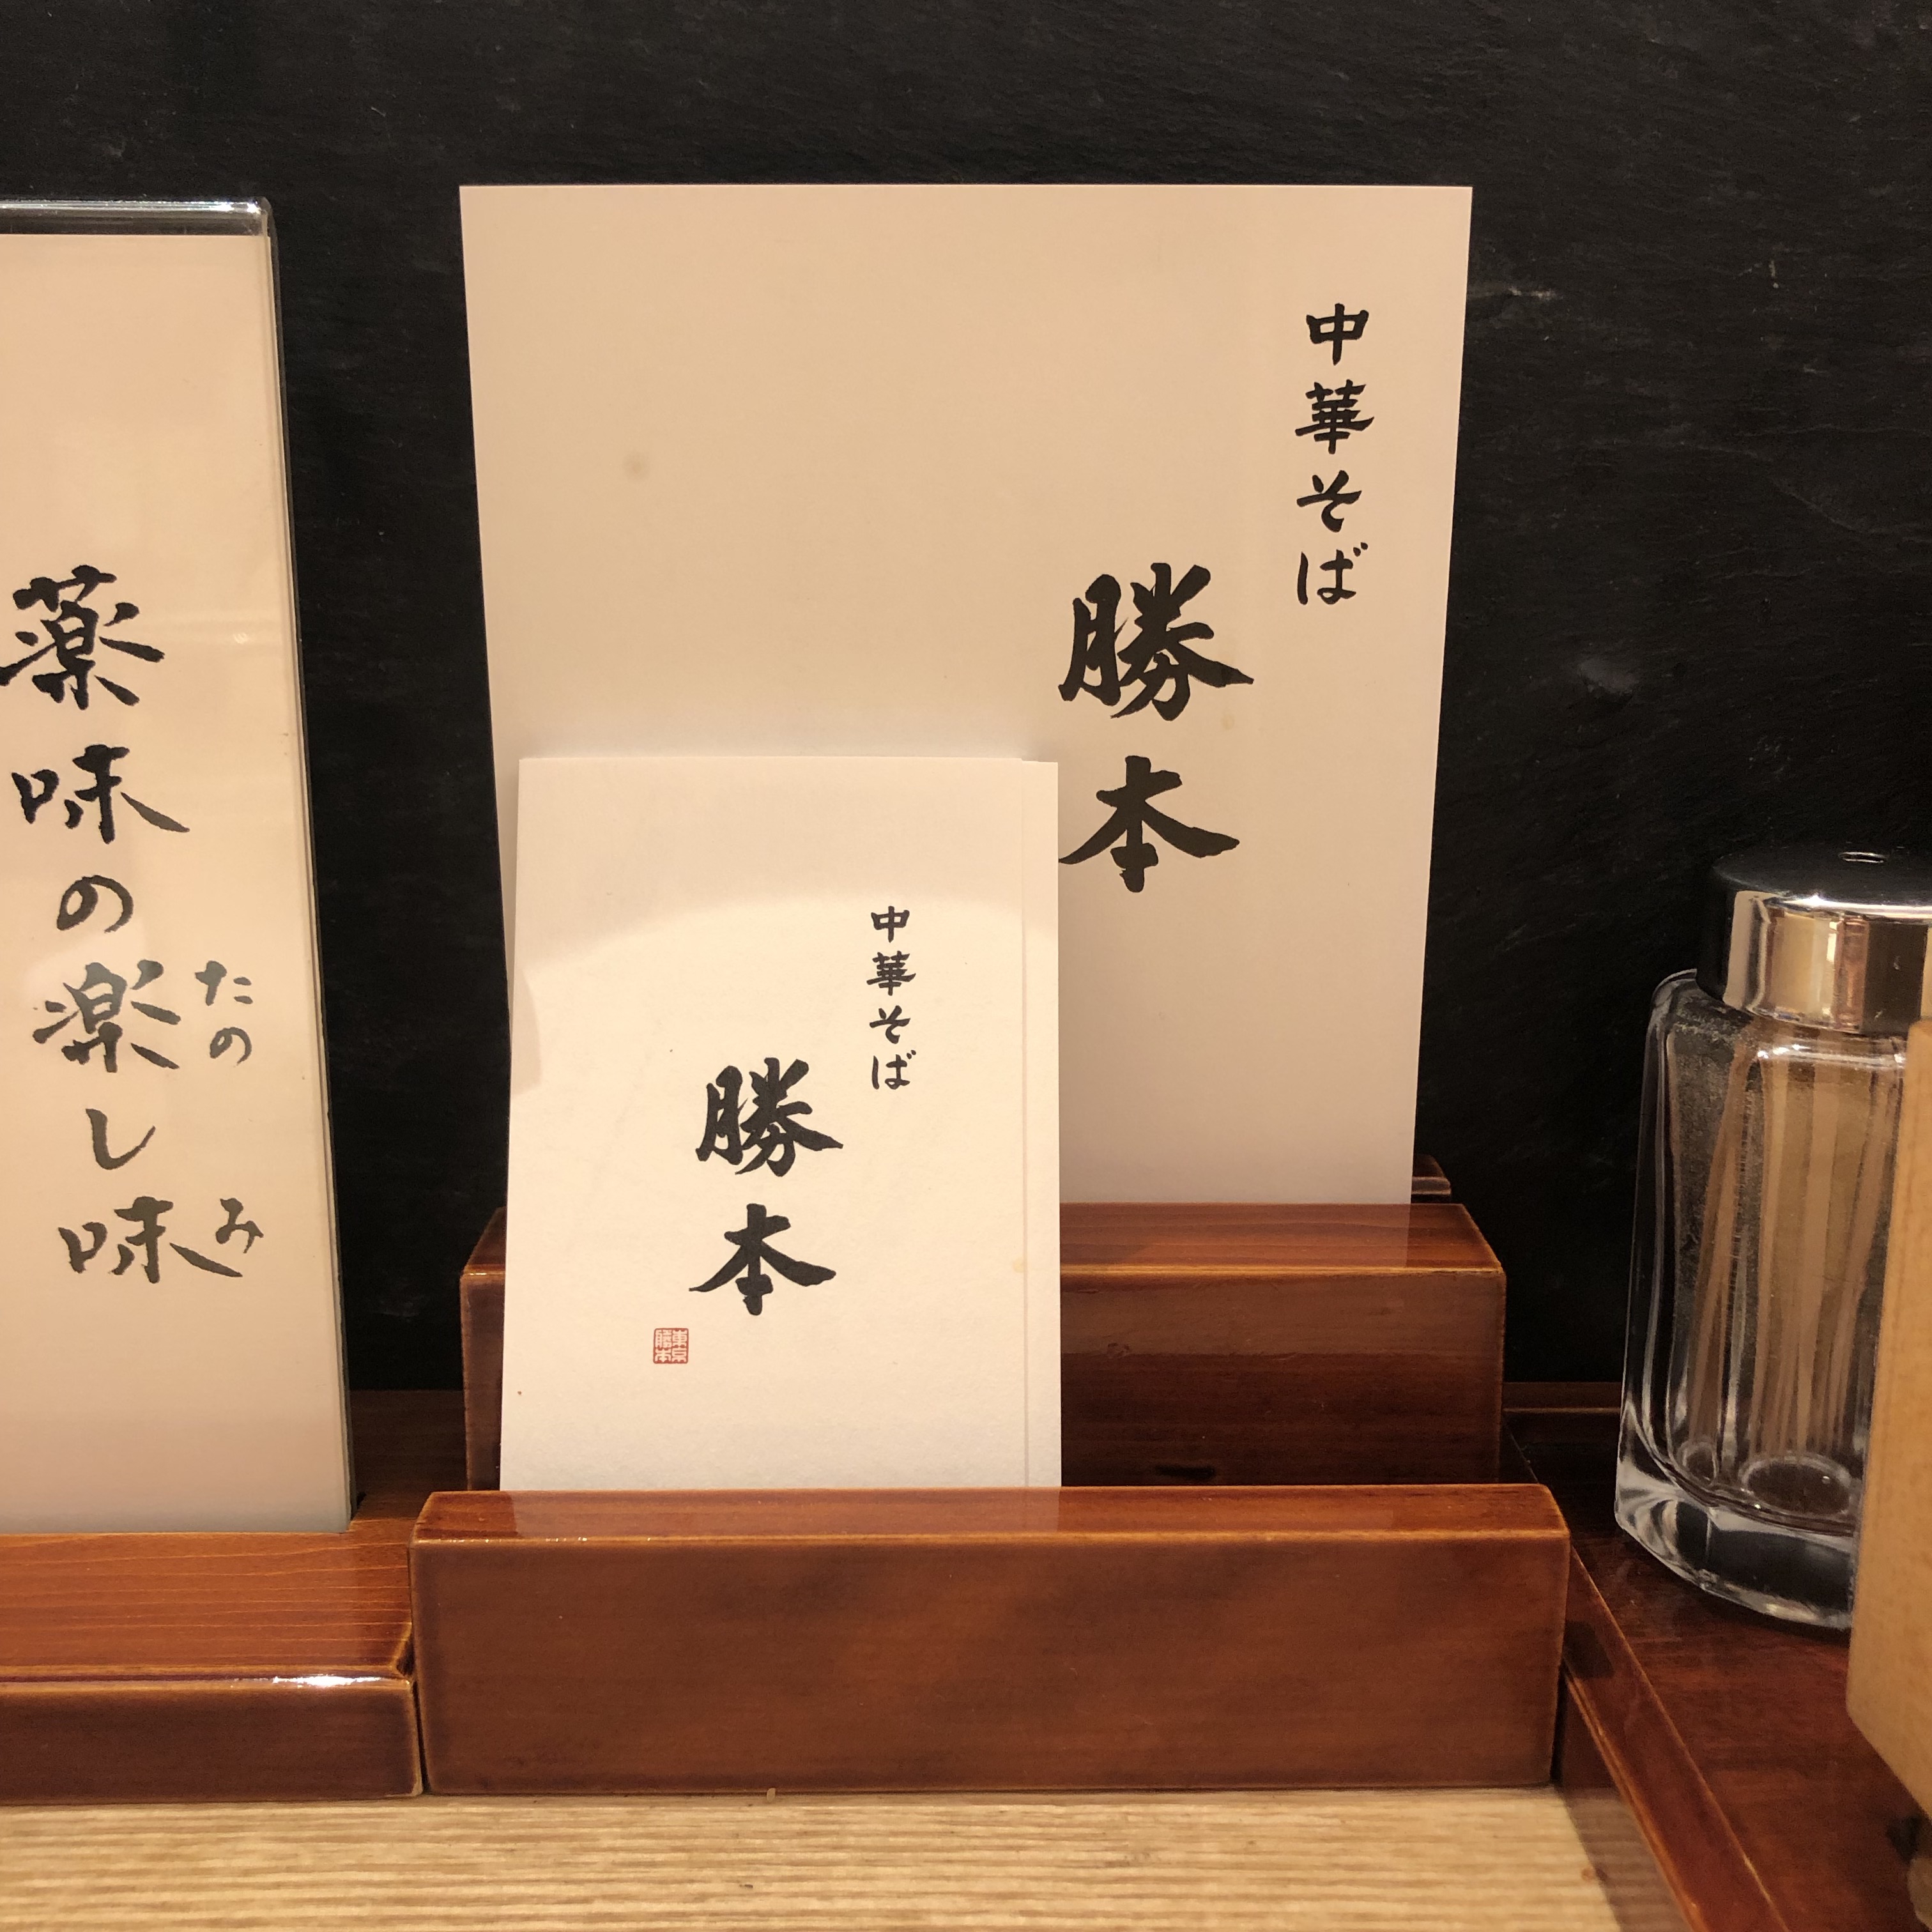 中華そば
勝本
中華そば
勝本
東京
勝本
薬味の楽し味
たの
み